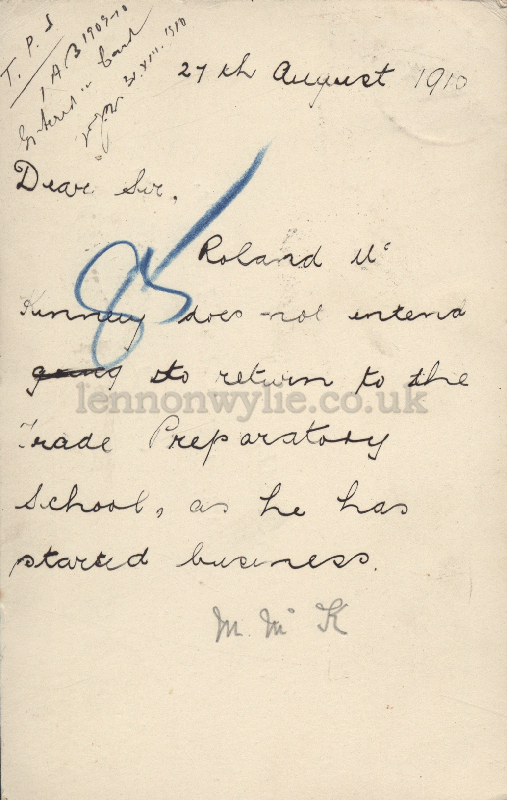 T. P. S
1 A B 1909-10
Entered in Card
31.VIII.1910
27th August 1910
Dear Sir,
85
Roland Mc
Kinney does not intend
going to return to the
lennonwylie.co.uk
Trade Preparatory
School, as he has
started business.
M. Mc K